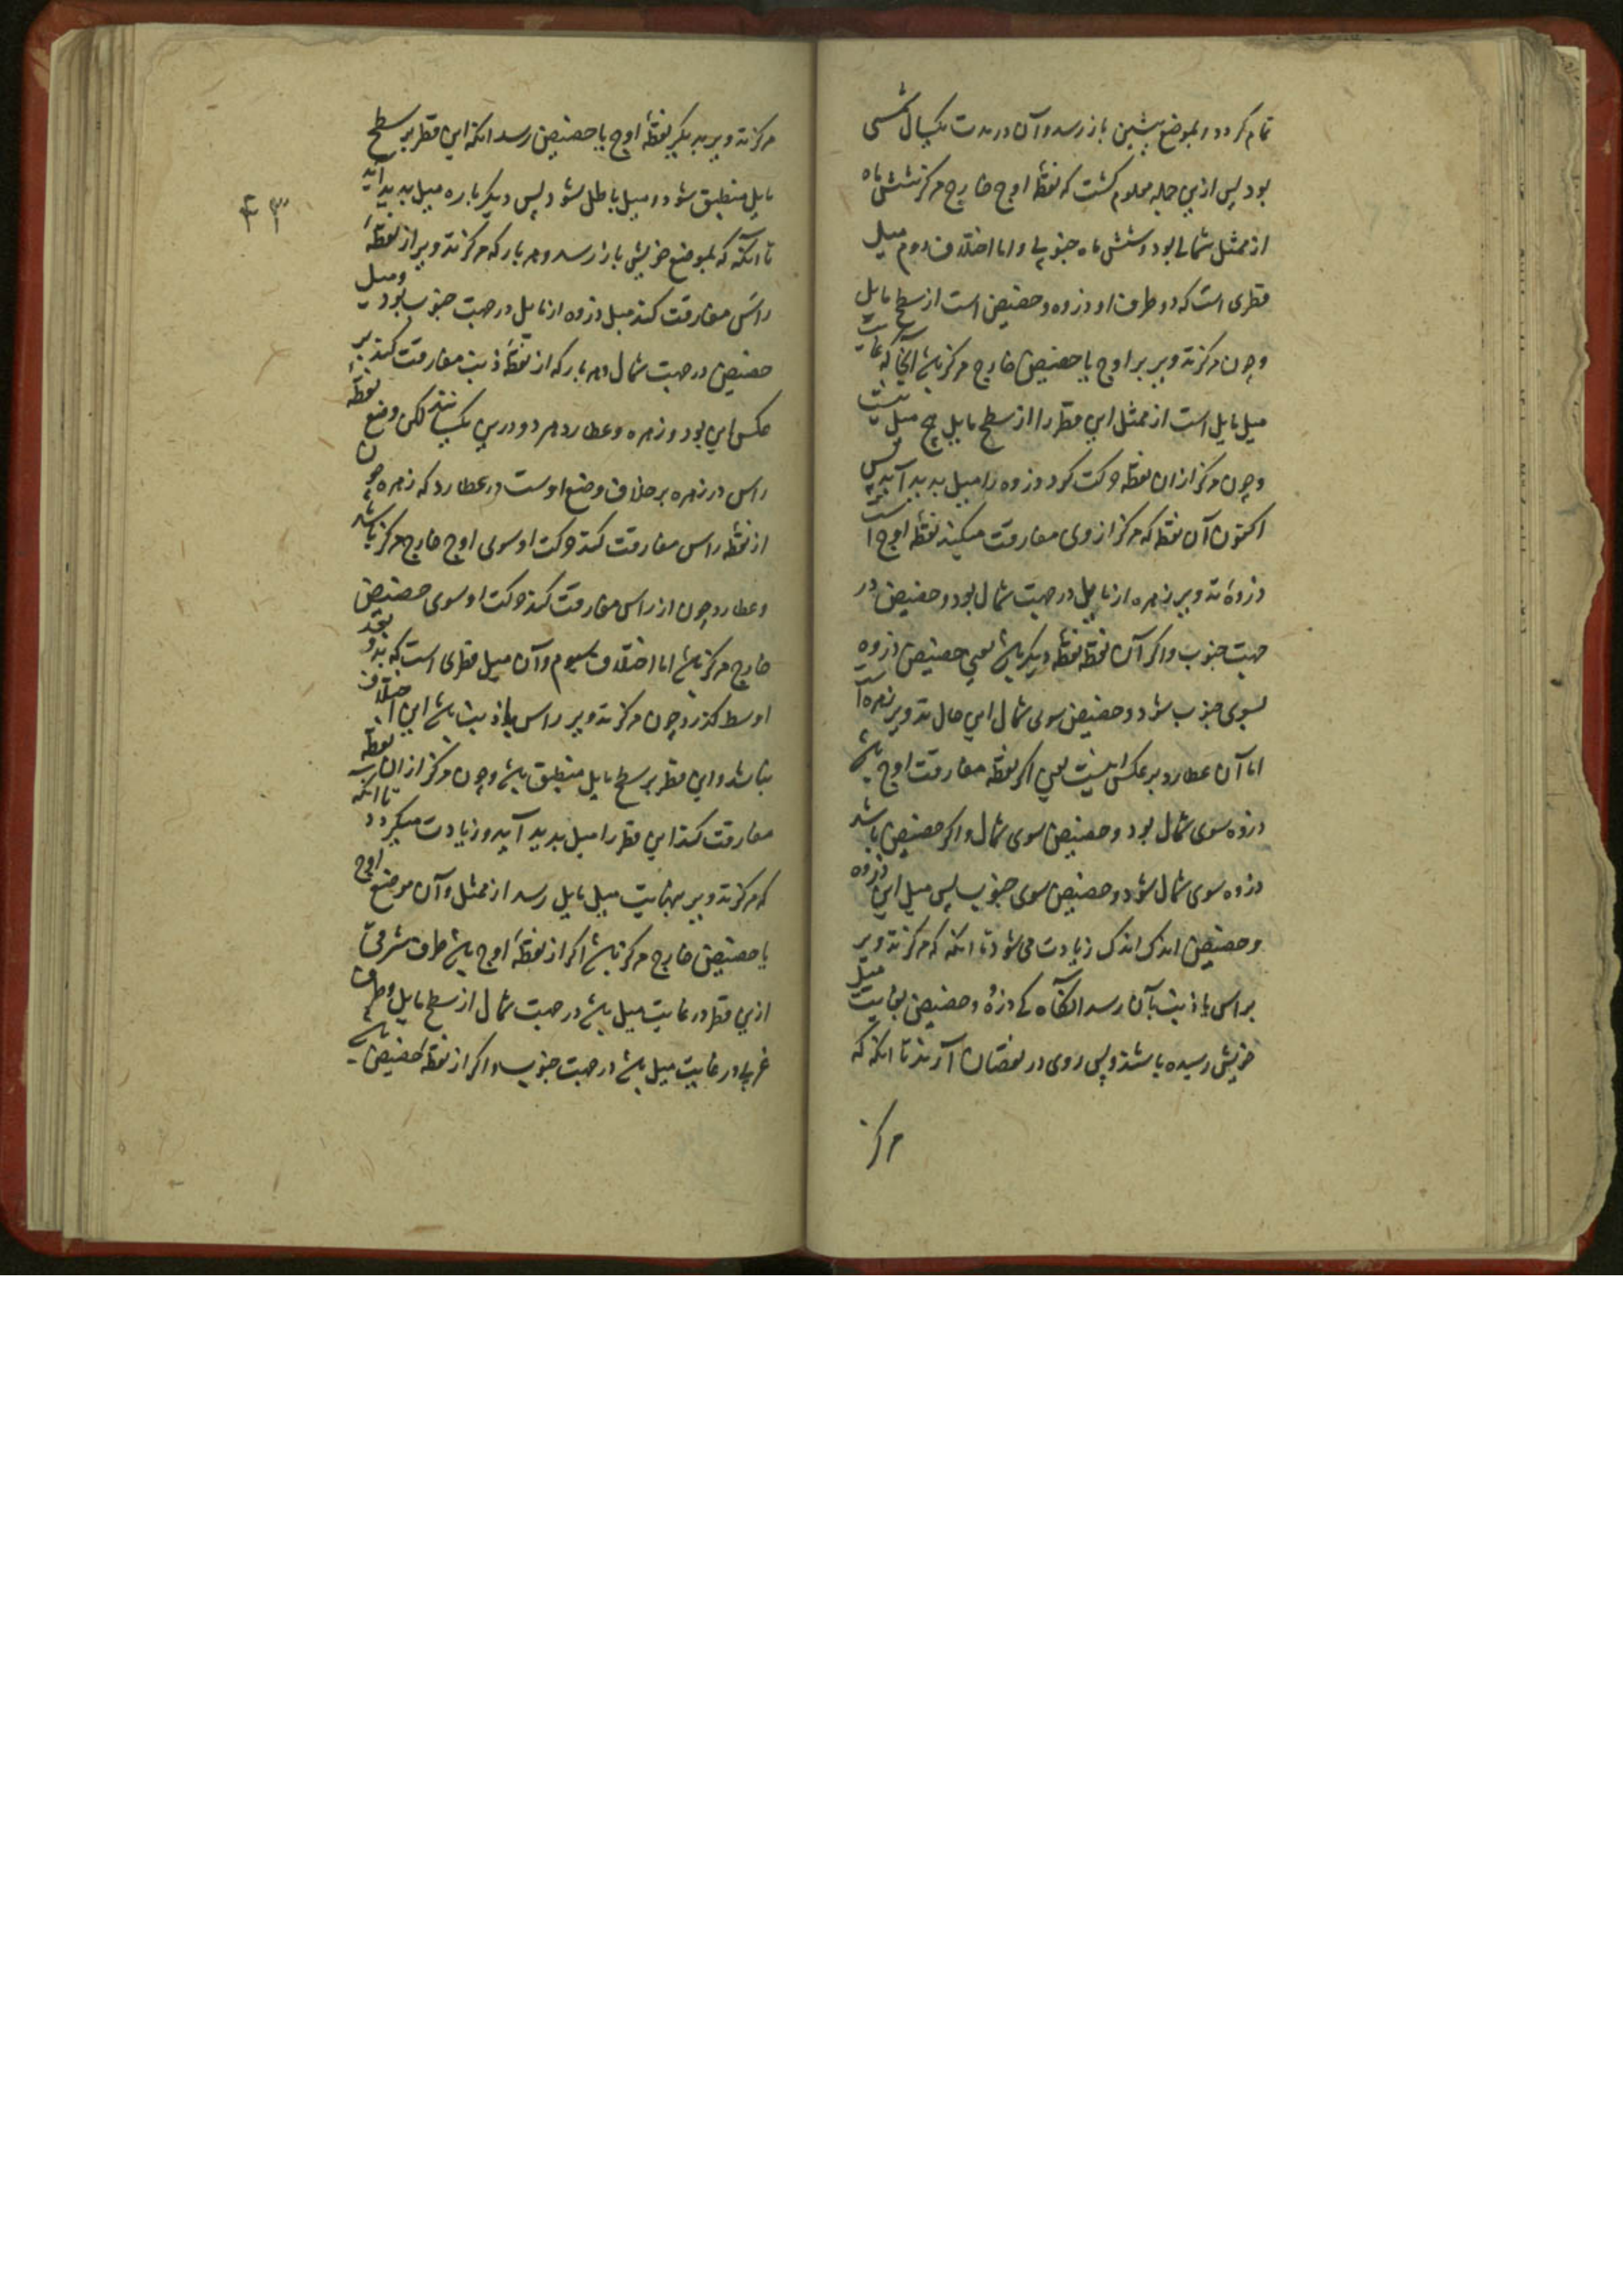 تمام کردد و بموضع پیشین باز رسد و آن در مدت یکسال شمسی
بود پس ازین جمله معلوم کشت که نقطهٔ اوج خارج مرکز شش ماه
از ممثل شمالی بود و شش ماه جنوبی و اما اختلاف دوم میل
قطری است که دو طرف او ذروه و حضیض است از سطح مایل
و چون مرکز تدویر بر اوج یا حضیض خارج مرکز باشد آنجا که غایت
میل مایل است از ممثل این قطر را از سطح مایل هیچ میل نیست
و چون مرکز ازان نقطه حرکت کرد ذروه را میل پدید آید پس
اکنون آن نقطه که مرکز از وی مفارقت میکند نقطهٔ اوج است
ذروهٔ تدویر زهره از مایل در جهت شمال بود و حضیض در
جهت جنوب و اکر آن نقطه نقطهٔ دیکر باشد یعنی حضیض ذروه
بسوی جنوب شود و حضیض سوی شمال این حال تدویر زهره است
اما آن عطارد بر عکس اینست یعنی اکر نقطه مفارقت اوج باشد
ذروه سوی شمال بود و حضیض سوی شمال و اکر حضیض باشد
ذروه سوی شمال شود و حضیض سوی جنوب پس میل این ذروه
و حضیض اندک اندک زیادت می شود تا انکه که مرکز تدویر
براس یا ذنب بآن رسد انکاه که ذروه و حضیض بغایت میل
خویش رسیده باشند و پس روی در نقصان آرند تا انکه که
مرکز
۴۳
مرکز تدویر بدیکر نقطهٔ اوج یا حضیض رسد انکه این قطر بر سطح
مایل منطبق شود و میل باطل شود پس دیکر باره میل پدید آید
تا آنکه که بموضع خویش باز رسد و هر بار که مرکز تدویر از نقطهٔ
راس مفارقت کند میل ذروه از مایل در جهت جنوب بود و میل
حضیض در جهت شمال و هر بار که از نقطهٔ ذنب مفارقت کند بر
عکس این بود و زهره و عطارد هر دو درین یکسانند لکن وضع نقطهٔ
راس در زهره بر خلاف وضع اوست در عطارد که زهره چون
از نقطهٔ راس مفارقت کند حرکت او سوی اوج خارج مرکز باشد
و عطارد چون از راس مفارقت کند حرکت او سوی حضیض
خارج مرکز باشد اما اختلاف سیوم و آن میل قطری است که بدو بعد
اوسط کذرد چون مرکز تدویر براس یا ذنب باشد این اختلاف
نباشد و این قطر بر سطح مایل منطبق باشد و چون مرکز ازان نقطه
مفارقت کند این قطر را میل پدید آید و زیادت میکردد تا انکه
که مرکز تدویر بنهایت میل مایل رسد از ممثل و آن موضع اوج
یا حضیض خارج مرکز باشد اکر از نقطهٔ اوج باشد طرف مشرقی
ازین قطر در غایت میل باشد در جهت شمال از سطح مایل و طرف
غربی در غایت میل باشد در جهت جنوب و اکر از نقطهٔ حضیض باشد